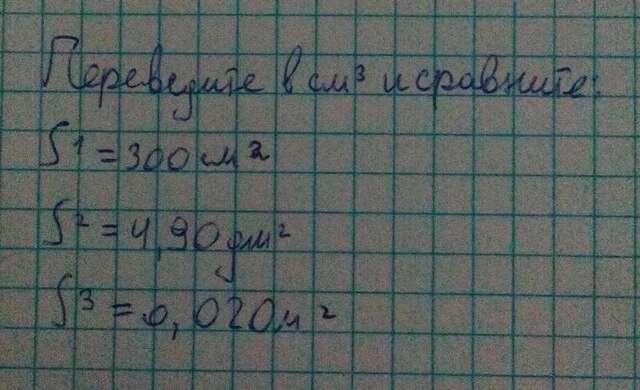 Переведите в см³ и сравните:
S1 = 300 см²
S2 = 4,90 дм²
S3 = 0,020 м²